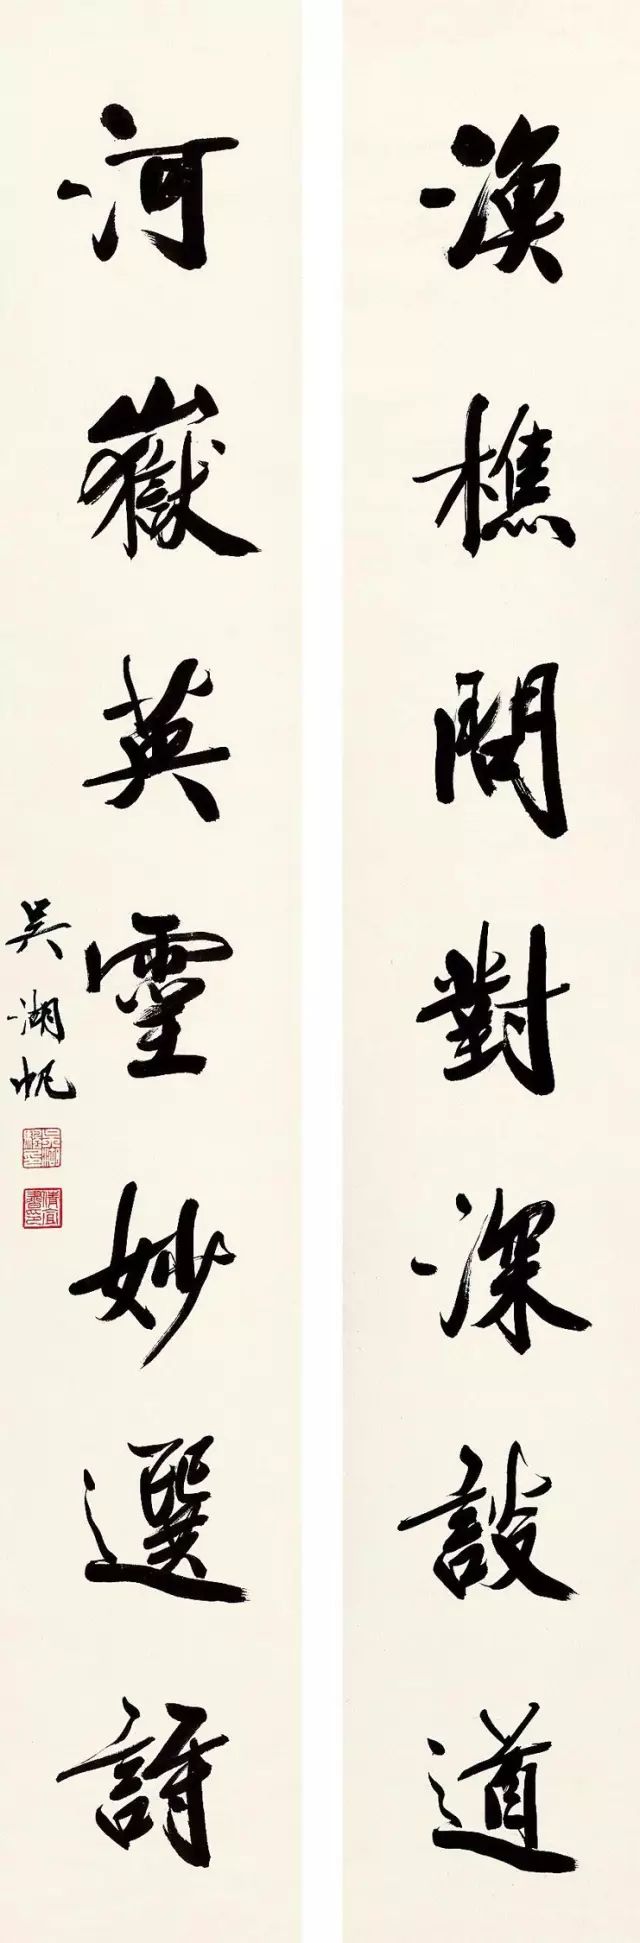 漁樵問對深談道
河嶽英靈妙選詩
吳湖帆